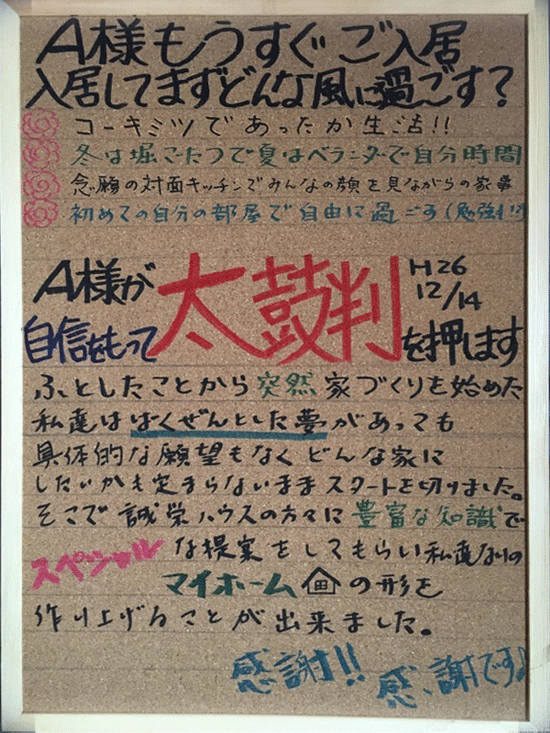 A様もうすぐご入居
入居してまずどんな風に過ごす?
コーキミツであったか生活!!
冬は堀ごたつで夏はベランダーで自分時間
念願の対面キッチンでみんなの顔を見ながらの家事
初めての自分の部屋で自由に過ごす(勉強も!?)
A様が
自信をもって
太鼓判
H26
12/14
を押します
ふとしたことから突然家づくりを始めた
私達はばくぜんとした夢があっても
具体的な願望もなくどんな家に
したいかも定まらないままスタートを切りました。
そこで誠栄ハウスの方々に豊富な知識で
スペシャルな提案をしてもらい私達なりの
マイホームの形を
作り上げることが出来ました。
感謝!! 感謝です♪